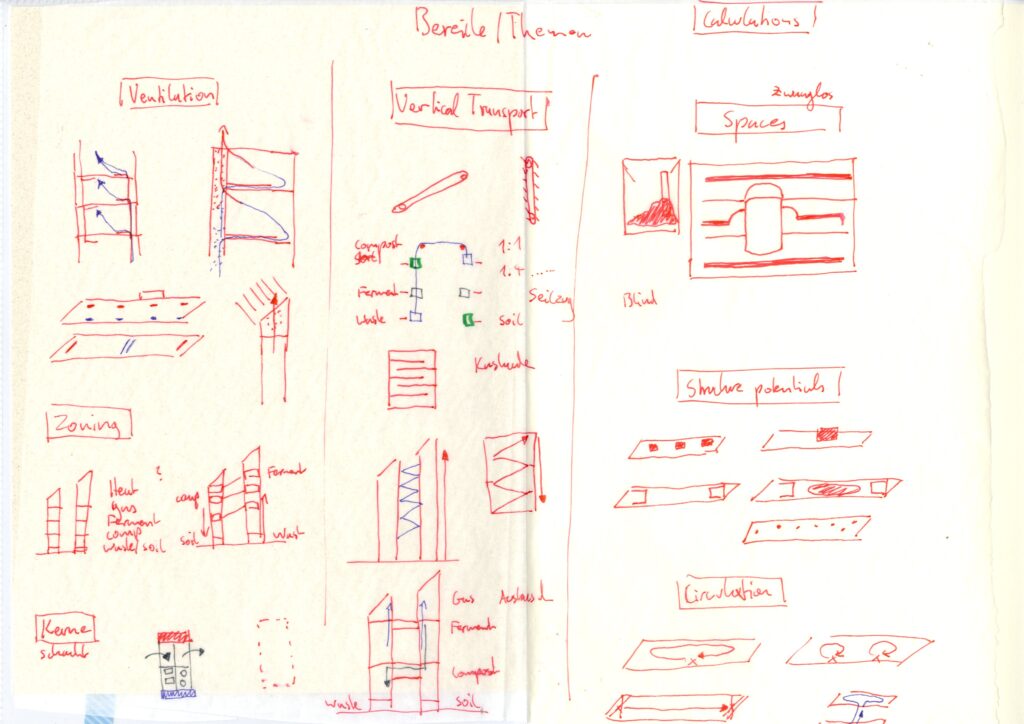 Bereiche / Themen
Ventilation
Zoning
?
Heat
gas
Ferment
comp
waste/soil
comp
soil
Ferment
Wast
Kerne
Schacht
Vertical Transport
compost
1:1
1:4 ....
Ferment
Seilzug
Waste
soil
Gas
Ferment
Compost
Waste
soil
Calculations
Zwanglos
Spaces
Blind
Struture potentials
Circulation